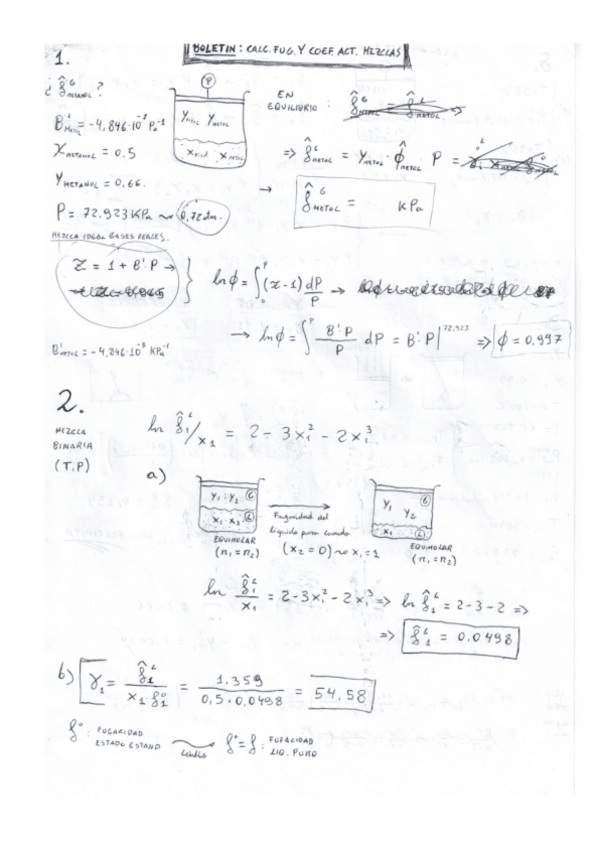 BOLETIN: CALC. FUG. Y COEF. ACT. MEZCLAS
1.
¿ f̂ᴳ METANOL ?
B'Metol = -4,846·10⁻⁸ Pa⁻¹
X METANOL = 0.5
Y METANOL = 0,66.
P = 72.923 KPa ~ 0,72 atm.
MEZCLA IDEAL GASES REALES.
P
Y METOL
X METOL
EN EQUILIBRIO :
⇒ f̂ᴳ METOL = Y METOL · ϕ̂ METOL · P =
→ f̂ᴳ METOL = KPa
Z = 1 + B'·P →
ln ϕ = ∫₀ᴾ (Z-1) dP/P →
→ ln ϕ = ∫ᴾ B'·P/P dP = B'·P |⁷²·⁹²³ ⇒ ϕ = 0.997
B'METOL = -4,246·10⁻⁵ KPa⁻¹
2.
MEZCLA
BINARIA
(T,P)
ln f̂₁ᴸ/x₁ = 2 - 3x₁² - 2x₁³
a)
Y₁ Y₂ G
X₁ X₂ L
EQUIMOLAR
(n₁=n₂)
Fugacidad del
líquido puro cuando
(x₂=0) ~ x₁=1
Y₁ Y₂ G
X₁ L
EQUIMOLAR
(n₁=n₂)
ln f̂₁ᴸ/x₁ = 2-3x₁²-2x₁³ ⇒ ln f̂₁ᴸ = 2-3-2 ⇒
⇒ f̂₁ᴸ = 0.0498
b) γ₁ = f̂₁ᴸ/(x₁·f₁°) = 1,359/(0,5·0,0498) = 54,58
f° : FUGACIDAD ESTADO ESTAND
f°=f : FUGACIDAD LIQ. PURO